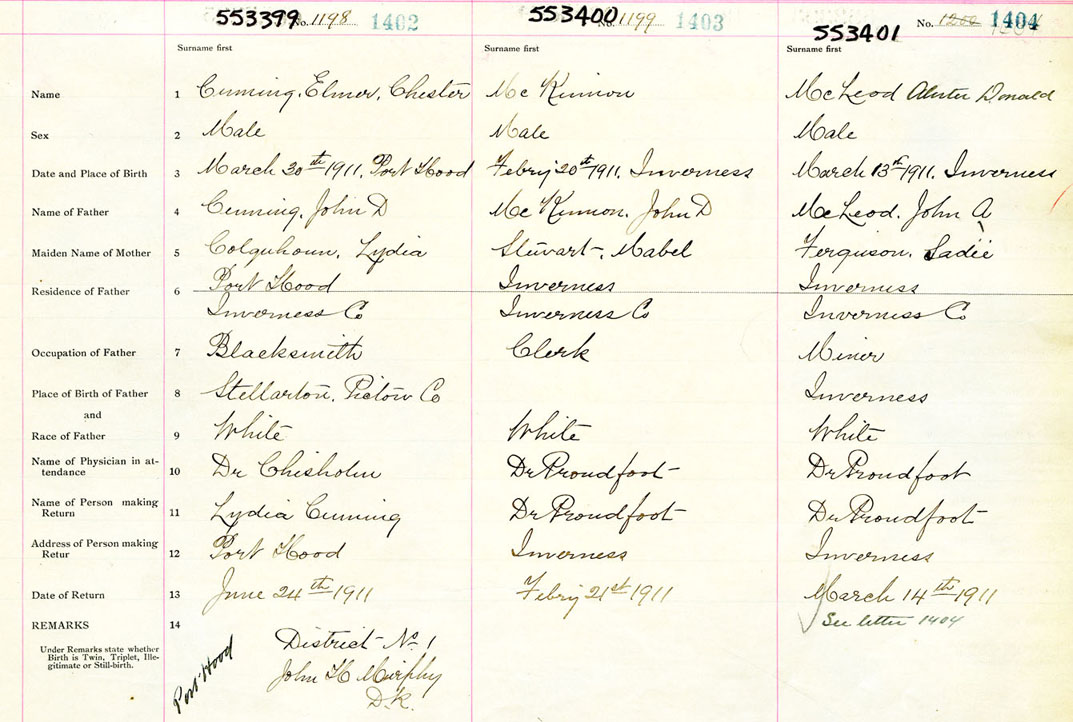 553399 No. 1198 1402 553400 No. 1199 1403 553401 No. 1200 1404
Surname first Surname first Surname first
Name 1 Cuming, Elmer, Chester Mc Kinnon McLeod Donald
Sex 2 Male Male Male
Date and Place of Birth 3 March 30th 1911, Port Hood Febry 20th 1911, Inverness March 13th 1911, Inverness
Name of Father 4 Cuming, John D Mc Kinnon, John D McLeod, John A
Maiden Name of Mother 5 Colquhoun, Lydia Stewart, Mabel Ferguson, Sadie
Residence of Father 6 Port Hood Inverness Inverness
Inverness Co Inverness Co Inverness Co
Occupation of Father 7 Blacksmith Clerk Miner
Place of Birth of Father 8 Stellarton, Pictou Co Inverness
and
Race of Father 9 White White White
Name of Physician in at-
tendance 10 Dr Chisholm Dr Proudfoot Dr Proudfoot
Name of Person making
Return 11 Lydia Cuming Dr Proudfoot Dr Proudfoot
Address of Person making
Retur 12 Port Hood Inverness Inverness
Date of Return 13 June 24th 1911 Febry 21st 1911 March 14th 1911
See letter 1404
REMARKS 14
Under Remarks state whether
Birth is Twin, Triplet, Ille-
gitimate or Still-birth.
Port Hood
District No. 1
John H Murphy
D.R.